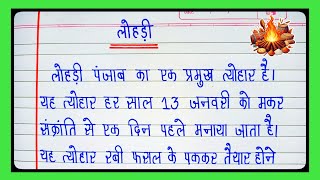 लोहड़ी
लोहड़ी पंजाब का एक प्रमुख त्योहार है।
यह त्योहार हर साल 13 जनवरी को मकर
संक्रांति से एक दिन पहले मनाया जाता है।
यह त्योहार रबी फसल के पककर तैयार होने